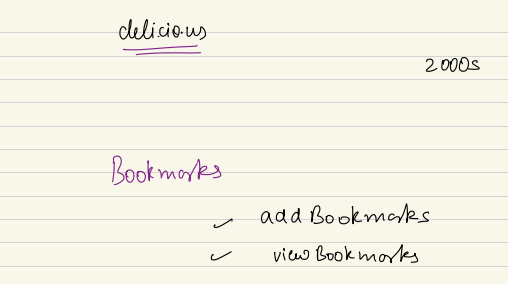 delicious
2000s
Bookmarks
✓ addBookmarks
✓ viewBookmarks